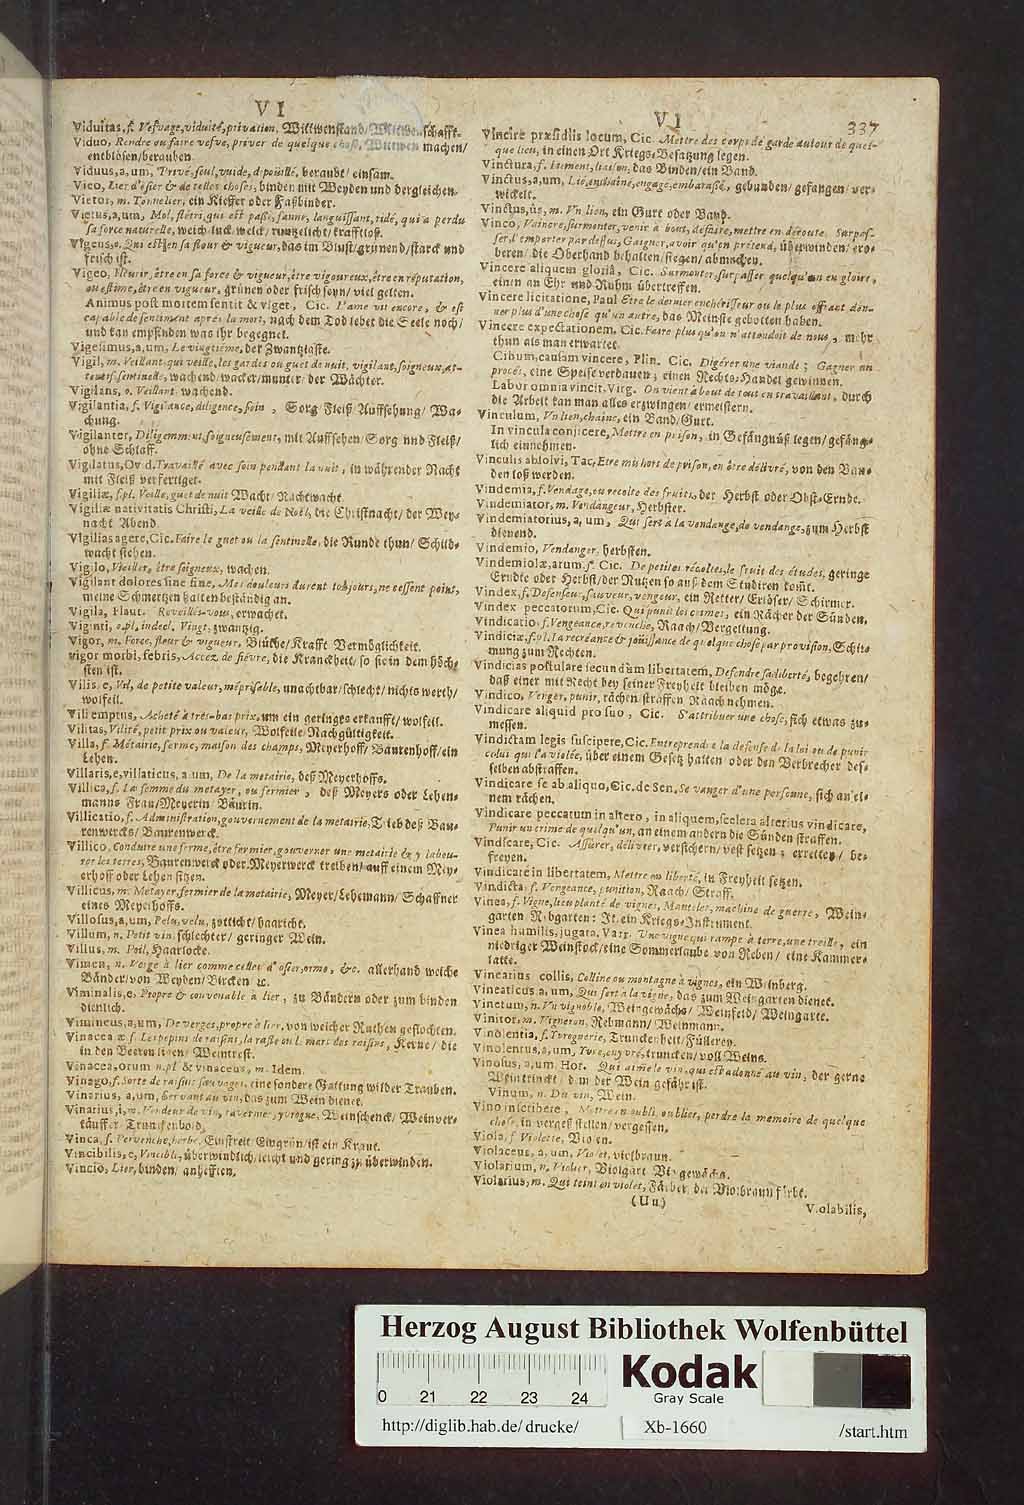 VI
Viduitas, f. Vefvage, viduité, privation, Wittwenstand/ Wittwenschafft.
Viduo, Rendre ou faire vefve, priver de quelque chose, Wittwen machen/
entblösen/berauben.
Viduus, a, um, Privé, seul, vuide, dépouillé, beraubt/ einsam.
Vieo, Lier d'osier & de telles choses, binden mit Weyden und dergleichen.
Vietor, m. Tonnelier, ein Kieffer oder Faßbinder.
Vietus, a, um, Mol, flétri, qui est passé, fanné, languissant, ridé, qui a perdu
sa force naturelle, weich/ luck/ welck/ runtzelicht/ krafftloß.
Vigens, o. Qui est en sa fleur & vigueur, das im Blust/grünend/starck und
frisch ist.
Vigeo, Fleurir, être en sa force & vigueur, être vigoureux, être en réputation,
ou estime, être en vigueur, grünen oder frisch seyn/ viel gelten.
Animus post mortem sentit & viget, Cic. l'ame vit encore, & est
capable de sentiment aprés la mort, nach dem Tod lebet die Seele noch/
und kan empfinden was ihr begegnet.
Vigesimus, a, um, Le vingtiéme, der Zwantzigste.
Vigil, m. Veillant, qui veille, les gardes ou guet de nuit, vigilant, soigneux, at-
tentif, sentinelle, wachend/ wacker/munter/ der Wächter.
Vigilans, o. Veillant, wachend.
Vigilantia, f. Vigilance, diligence, soin, Sorg/ Fleiß/ Auffsehung/ Wa-
chung.
Vigilanter, Diligemment, soigneusement, mit Auffsehen/ Sorg und Fleiß/
ohne Schlaff.
Vigilatus, Ovid. Travaillé avec soin pendant la nuit, in währender Nacht
mit Fleiß verfertiget.
Vigiliæ, f. pl. Veille, guet de nuit Wacht/ Nachtwacht.
Vigiliæ nativitatis Christi, La veille de Noël, die Christnacht/ der Wey-
nacht Abend.
Vigilias agere, Cic. Faire le guet ou la sentinelle, die Runde thun/ Schild-
wacht stehen.
Vigilo, Veiller, être soigneux, wachen.
Vigilant dolores sine fine, Mes douleurs durent toûjours, ne cessent point,
meine Schmertzen halten beständig an.
Vigila, Plaut. Reveillés-vous, erwachet.
Viginti, o. pl. indecl. Vingt, zwantzig.
Vigor, m. Force, fleur & vigueur, Blüthe/ Krafft/ Vermöglichkeit.
Vigor morbi, febris, Accez de fiévre, die Kranckheit/ so sie in dem höch-
sten ist.
Vilis, e, Vil, de petite valeur, méprisable, unachtbar/schlecht/ nichts werth/
wolfeil.
Vili emptus, Acheté à tres-bas prix, um ein geringes erkaufft/ wolfeil.
Vilitas, Vilité, petit prix ou valeur, Wolfeile/ Nachgültigkeit.
Villa, f. Métairie, ferme, maison des champs, Meyerhoff/ Baurenhoff/ein
Lehen.
Villaris, e, villaticus, a, um, De la metairie, deß Meyerhoffs.
Villica, f. La femme du metayer, ou fermier, deß Meyers oder Lehen-
manns Frau/Meyerin/ Bäurin.
Villicatio, f. Administration, gouvernement de la metairie, Trieb deß Bau-
renwercks/ Baurenwerck.
Villico, Conduire une ferme, être fermier, gouverner une metairie & y labou-
rer les terres, Baurenwerck oder Meyerwerck treiben/ auff einem Mey-
erhoff oder Lehen sitzen.
Villicus, m. Metayer, fermier de la metairie, Meyer/ Lehemann/ Schaffner
eines Meyerhoffs.
Villosus, a, um, Pelu, velu, zotticht/ haaricht.
Villum, n. Petit vin, schlechter/ geringer Wein.
Villus, m. Poil, Haarlocke.
Vimen, n. Verge à lier comme celles d'osier, orme, &c. allerhand weiche
Bänder/von Weyden/ Bircken ꝛc.
Viminalis, e, Propre & convenable à lier, zu Bändern oder zum binden
dienlich.
Vimineus, a, um, De verges, propre à lier, von weicher Ruthen geflochten.
Vinacea æ f. Les pepins de raisins, la rafle ou l. marc des raisins, Kerne/ die
in den Beeren ligen/ Weintrest.
Vinacea, orum n. pl. & vinaceus, m. Idem.
Vinago, f. Sorte de raisins sauvages, eine sondere Gattung wilder Trauben.
Vinarius, a, um, Servant au vin, das zum Wein dienet.
Vinarius, i, m. Vendeur de vin, tavernier, yvrogne, Weinschenck/ Weinver-
käuffer/ Trunckenbold.
Vinca, f. Pervenche, herbe, Einstreit/ Eingrün/ist ein Kraut.
Vincibilis, e, Vincible, überwindlich/leicht und gering zu überwinden.
Vincio, Lier, binden/ anhefften.
VI
337
Vincire præsidiis locum, Cic. Mettre des corps de garde autour de quel-
que lieu, in einen Ort Kriegs-Besatzung legen.
Vinctura, f. Liement, liaison, das Binden/ein Band.
Vinctus, a, um, Lié, enchaîné, engagé, embarassé, gebunden/ gefangen/ ver-
wickelt.
Vinctus, ûs, m. Vn lien, ein Gurt oder Band.
Vinco, Vaincre, surmonter, venir à bout, défaire, mettre en déroute, Surpas-
ser, l'emporter par dessus, Gaigner, avoir qu'on prétend, überwinden/ ero-
beren/ die Oberhand behalten/siegen/ abmachen.
Vincere aliquem gloriâ, Cic. Surmonter, surpasser quelqu'un en gloire,
einen an Ehr und Ruhm übertreffen.
Vincere licitatione, Paul Etre le dernier enchérisseur ou le plus offrant don-
ner plus d'une chose qu'un autre, das Meinste gebotten haben.
Vincere expectationem, Cic. Faire plus qu'on n'attendoit de nous, mehr
thun als man erwartet.
Cibum, causam vincere, Plin. Cic. Digérer une viande; Gagner un
procés, eine Speise verdauen; einen Rechts-Handel gewinnen.
Labor omnia vincit, Virg. On vient à bout de tout en travaillant, durch
die Arbeit kan man alles erzwingen/ ermeistern.
Vinculum, Vn lien, chaîne, ein Band/ Gurt.
In vincula conjicere, Mettre en prison, in Gefängnüß legen/ gefäng-
lich einnehmen.
Vinculis absolvi, Tac, Etre mis hors de prison, en être délivré, von den Ban-
den loß werden.
Vindemia, f. Vendage, ou récolte des fruits, der Herbst oder Obst-Ernde.
Vindemiator, m. Vendangeur, Herbster.
Vindemiatorius, a, um, Qui sert à la vendange, de vendange, zum Herbst
dienend.
Vindemio, Vendanger, herbsten.
Vindemiolæ, arum. f. Cic. De petites récoltes, le fruit des études, geringe
Erndte oder Herbst/der Nutzen so auß dem Studiren komt.
Vindex, f. Defenseur, sauveur, vengeur, ein Retter/ Erlöser/ Schirmer.
Vindex peccatorum, Cic. Qui punit les crimes, ein Rächer der Sünden.
Vindicatio, f. Vengeance, revenche, Raach/ Vergeltung.
Vindiciæ, f. pl. La recréance & joüissance de quelque chose par provision, Schir-
mung zum Rechten.
Vindicias postulare secundùm libertatem, Defendre sa liberté, begehren/
daß einer mit Recht bey seiner Freyheit bleiben möge.
Vindico, Verger, punir, rächen/straffen/ Raach nehmen.
Vindicare aliquid pro suo, Cic. S'attribuer une chose, sich etwas zu-
messen.
Vindictam legis suscipere, Cic. Entreprendre la defense de la loi ou de punir
celui qui l'a violée, über einem Gesetz halten oder den Verbrecher des-
selben abstraffen.
Vindicare se ab aliquo, Cic. de Sen. Se vanger d'une personne, sich an ei-
nem rächen.
Vindicare peccatum in altero, in aliquem, scelera alterius vindicare,
Punir un crime de quelqu'un, an einem andern die Sünden straffen.
Vindicare, Cic. Assûrer, délivrer, versichern/ vest setzen; erretten/ be-
freyen.
Vindicare in libertatem, Mettre en liberté, in Freyheit setzen.
Vindicta, f. Vengeance, punition, Raach/ Straff.
Vinea, f. Vigne, lieu planté de vignes, Mantelet, machine de guerre, Wein-
garten/ Rebgarten: It. ein Kriegs-Instrument.
Vinea humilis, jugata, Varr. Vne vigne qui rampe à terre, une treille, ein
niedriger Weinstock/ eine Sommerlaube von Reben/ eine Kammer-
latte.
Vinearius collis, Colline ou montagne à vignes, ein Weinberg.
Vineaticus a, um, Qui sert à la vigne, das zum Weingarten dienet.
Vinetum, n. Vn vignoble, Weingewächs/ Weinfeld/ Weingarte.
Vinitor, m. Vigneron, Rebmann/ Weinmann.
Vinolentia, f. Yvrognerie, Trunckenheit/Füllerey.
Vinolentus, a, um, Yvre, enyvré, truncken/ voll Weins.
Vinosus, a, um, Hor. Qui aime le vin, qui est adonné au vin, der gerne
Wein trinckt/ dem der Wein gefähr ist.
Vinum, n. Du vin, Wein.
Vino inscribere, Mettre en oubli, oublier, perdre la memoire de quelque
chose, in vergeß stellen/ vergessen.
Viola, f. Violette, Violen.
Violaceus, a, um, Violet, vielbraun.
Violarium, n. Violier, Violgart/ Violgewächs.
Violarius, m. Qui teint en violet, Färber, der Violbraun färbt.
(Uu)
Violabilis,
Herzog August Bibliothek Wolfenbüttel
0 21 22 23 24
Kodak
Gray Scale
http://diglib.hab.de/drucke/ Xb-1660 /start.htm